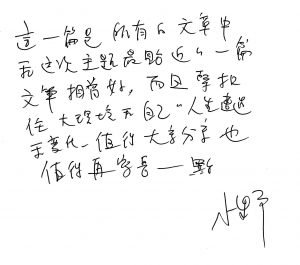 這一篇是所有的文章中
和這次主題最貼近的一篇
文筆相當好，而且緊扣
住大環境和自己“人生遭遇
和變化。值得大家分享也
值得再寫長一點
小野